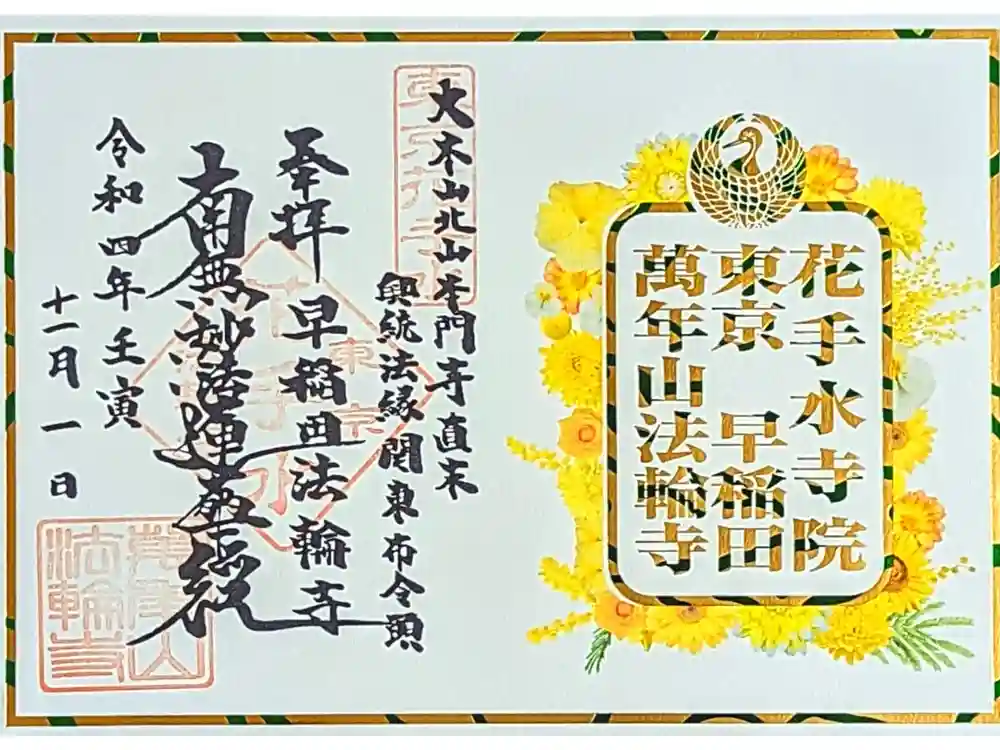 花手水寺院
東京 早稲田
萬年山法輪寺
大本山北山本門寺直末
興統法縁関東布令頭
奉拝 早稲田法輪寺
南無妙法蓮華経
令和四年壬寅
十一月一日
東京
萬年山
法輪寺